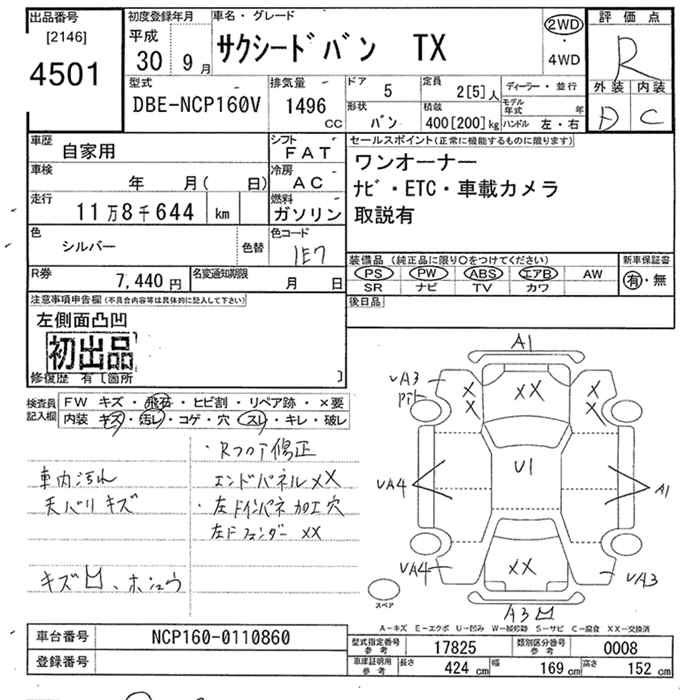 出品番号
[2146]
4501
初度登録年月
平成
30年 9月
車名・グレード
サクシードバン TX
2WD
・
4WD
評価点
R
外装 内装
D C
型式
DBE-NCP160V
排気量
1496
CC
ドア
5
定員
2[5]人
形状
バン
積載
400[200]kg
ディーラー・並行
モデル年式 年
ハンドル 左・右
車歴
自家用
シフト
FAT
車検
年 月( 日)
冷房
AC
走行
11万8千644 km
燃料
ガソリン
色
シルバー
色替
色コード
1E7
R券
7,440円
名変通知期限
月 日
セールスポイント(正常に機能するものに限ります)
ワンオーナー
ナビ・ETC・車載カメラ
取説有
装備品(純正品に限り○をつけてください)
新車保証書
PS PW ABS エアB AW
SR ナビ TV カワ
有・無
後日品
注意事項申告欄(不具合内容等は具体的に記入して下さい)
左側面凸凹
初出品
修復歴 有 [箇所 ]
検査員記入欄
FW キズ・飛石・ヒビ割・リペア跡・×要
内装 キズ・汚レ・コゲ・穴・スレ・キレ・破レ
・Rフロア修正
車内汚れ
エンドパネルXX
天バリキズ
・左Fインパネ加工穴
左Fフェンダー XX
キズ凹、ホシュウ
A1
VA3
X
X
XX
X
X
U1
VA4
A1
VA4
XX
VA3
A3凹
スペア
A-キズ E-エクボ U-凹み W-補修跡 S-サビ C-腐食 XX-交換済
車台番号
NCP160-0110860
登録番号
型式指定番号
参考
17825
類別区分番号
参考
0008
車庫証明用
参考
長さ
424 cm
幅
169 cm
高さ
152 cm